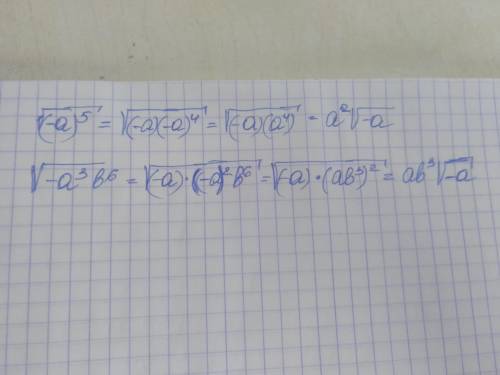 √(-a)⁵ = √(-a)(-a)⁴ = √(-a)(a⁴) = a²√-a
√-a³b⁶ = √(-a)·(-a)²b⁶ = √(-a)·(ab³)² = ab³√-a